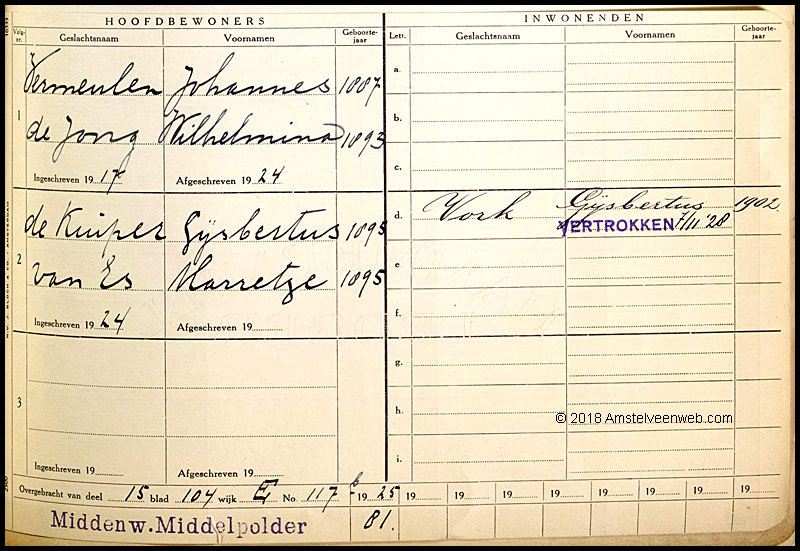 HOOFDBEWONERS INWONENDEN
Volg-nr. Geslachtsnaam Voornamen Geboorte-jaar Lett. Geslachtsnaam Voornamen Geboorte-jaar
1 Vermeulen Johannes 1887 a.
de Jong Wilhelmina 1893 b.
Ingeschreven 19 17 Afgeschreven 19 24 c.
2 de Kuiper Gijsbertus 1895 d. Vork Gijsbertus 1902.
VERTROKKEN 7/11 '28
van Es Marretje 1895 e
Ingeschreven 19 24 Afgeschreven 19 f.
3 g.
h.
© 2018 Amstelveenweb.com
Ingeschreven 19 Afgeschreven 19 i.
Overgebracht van deel 15 blad 104 wijk E No. 117 b 19 25 19 19 19 19 19 19 19 19
Middenw. Middelpolder 81.